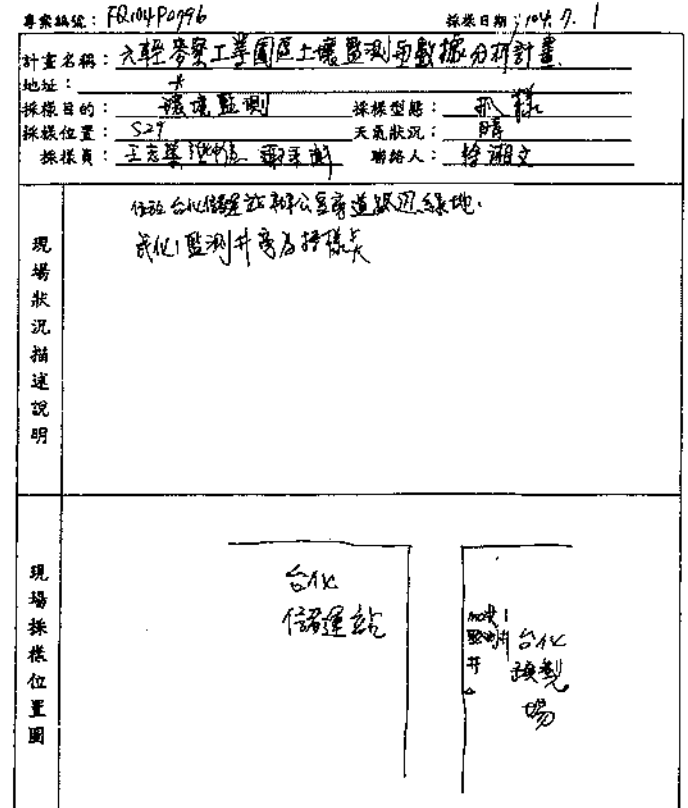 專案編號：FQ104P0796 採樣日期：104.7.1
計畫名稱：六輕麥寮工業園區土壤監測與數據分析計畫
地址：
採樣目的：環境監測 採樣型態：
採樣位置：S29 天氣狀況：晴
採樣員：王志 聯絡人：
現場狀況描述說明
位於台化儲運站辦公室旁道路邊綠地.
監測井旁為採樣點
現場採樣位置圖
台化
儲運站
監測井
台化
預製
場